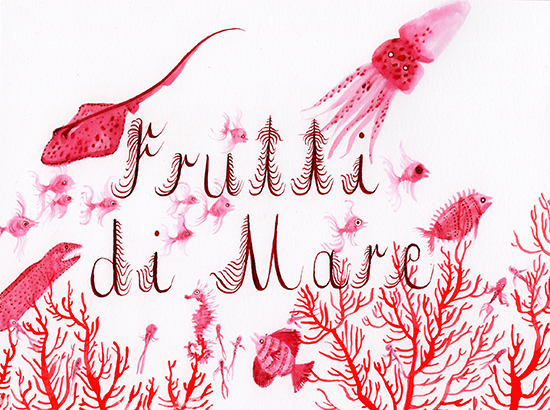 Frutti
di Mare